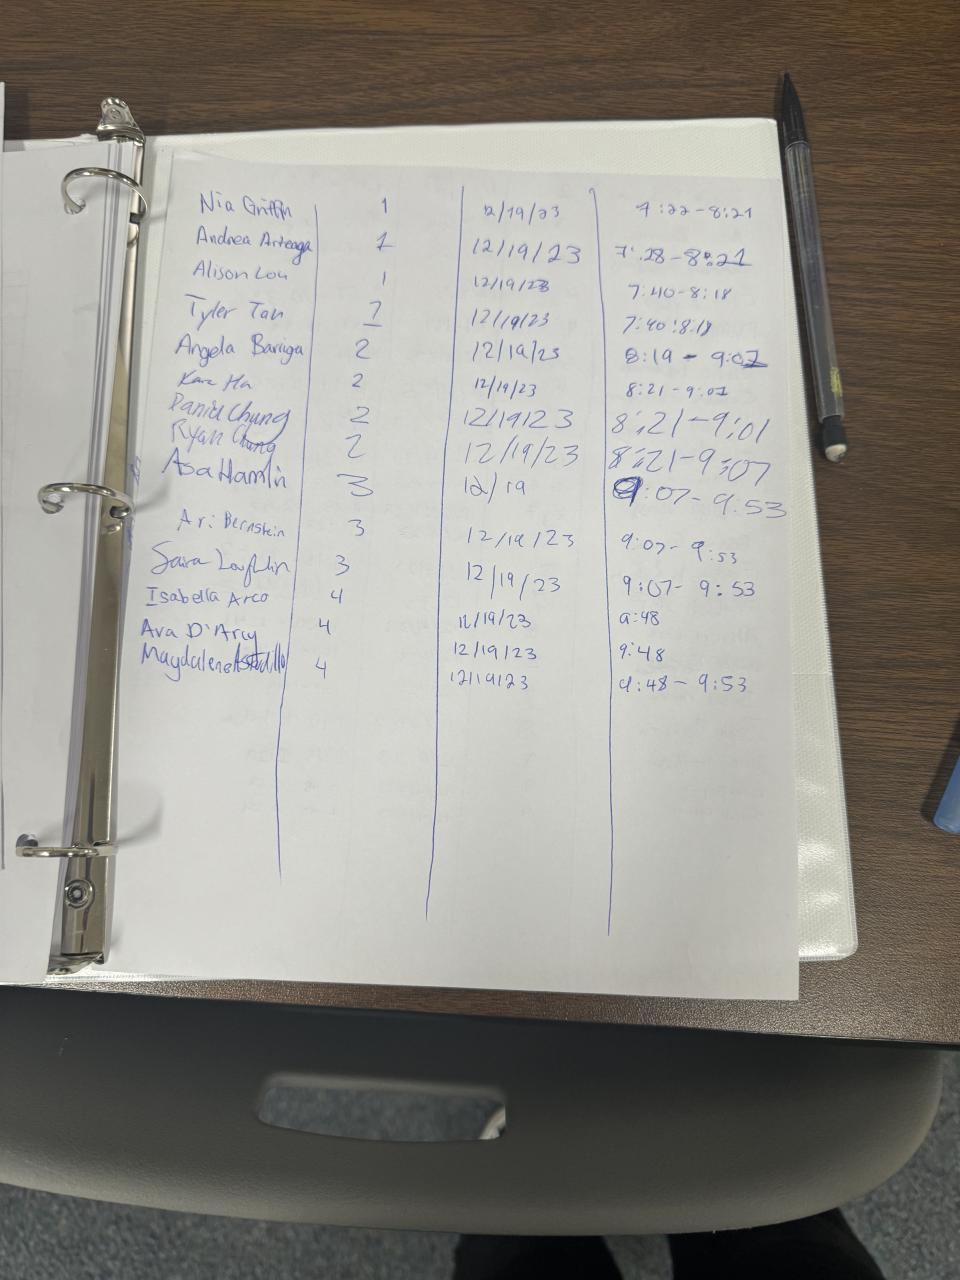 Nia Griffin 1 12/19/23 7:22-8:21
Andrea Arteaga 1 12/19/23 7:28-8:21
Alison Lou 1 12/19/23 7:40-8:18
Tyler Tan 12/19/23 7:40-8:18
Angela Barriga 2 12/19/23 8:19 - 9:07
Ha 2 12/19/23 8:21-9:07
Daniel Chung 2 12/19/23 8:21-9:01
Ryan Chung 2 12/19/23 8:21-9:07
Asa Hamlin 3 12/19 9:07-9:53
Ari Bernstein 3 12/19/23 9:07-9:53
3 12/19/23 9:07-9:53
Isabella Arco 4 12/19/23 9:48
Ava D'Arcy 4 12/19/23 9:48
Magdalene Astudillo 4 12/19/23 9:48-9:53